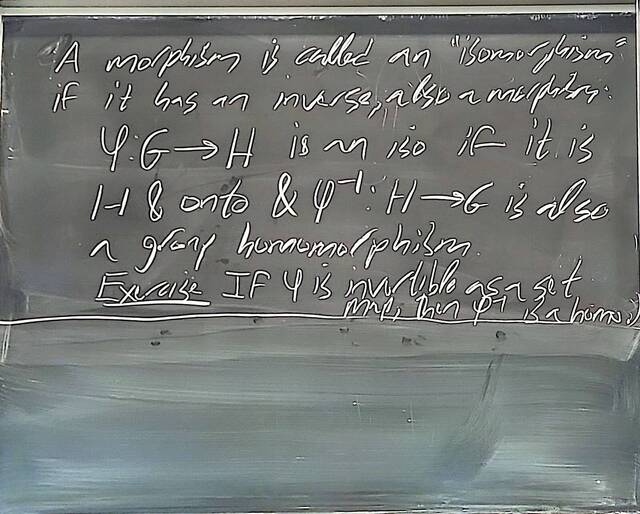 A morphism is called an "isomorphism"
if it has an inverse, also a morphism:
φ: G → H is an iso if it is
1-1 & onto & φ⁻¹: H → G is also
a group homomorphism.
Exercise If φ is invertible as a set
map, then φ⁻¹ is a homo.)